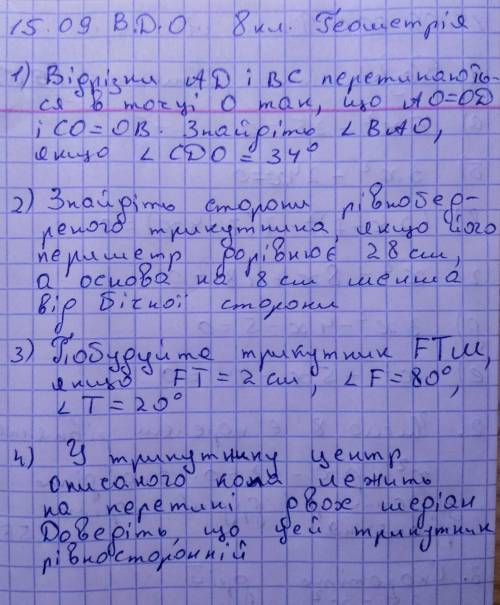 15.09 В.Д.О 8 кл. Геометрія
1) Відрізки AD і BC перетинають-
ся в точці O так, що AO=OD
і CO=OB. Знайдіть ∠BAO,
якщо ∠CDO = 34°
2) Знайдіть сторони рівнобед-
реного трикутника, якщо його
периметр дорівнює 28 см,
а основа на 8 см менша
від бічної сторони
3) Побудуйте трикутник FTM,
якщо FT = 2 см, ∠F = 80°,
∠T = 20°
4) У трикутнику центр
описаного кола лежить
на перетині двох медіан
Доведіть, що цей трикутник
рівносторонній